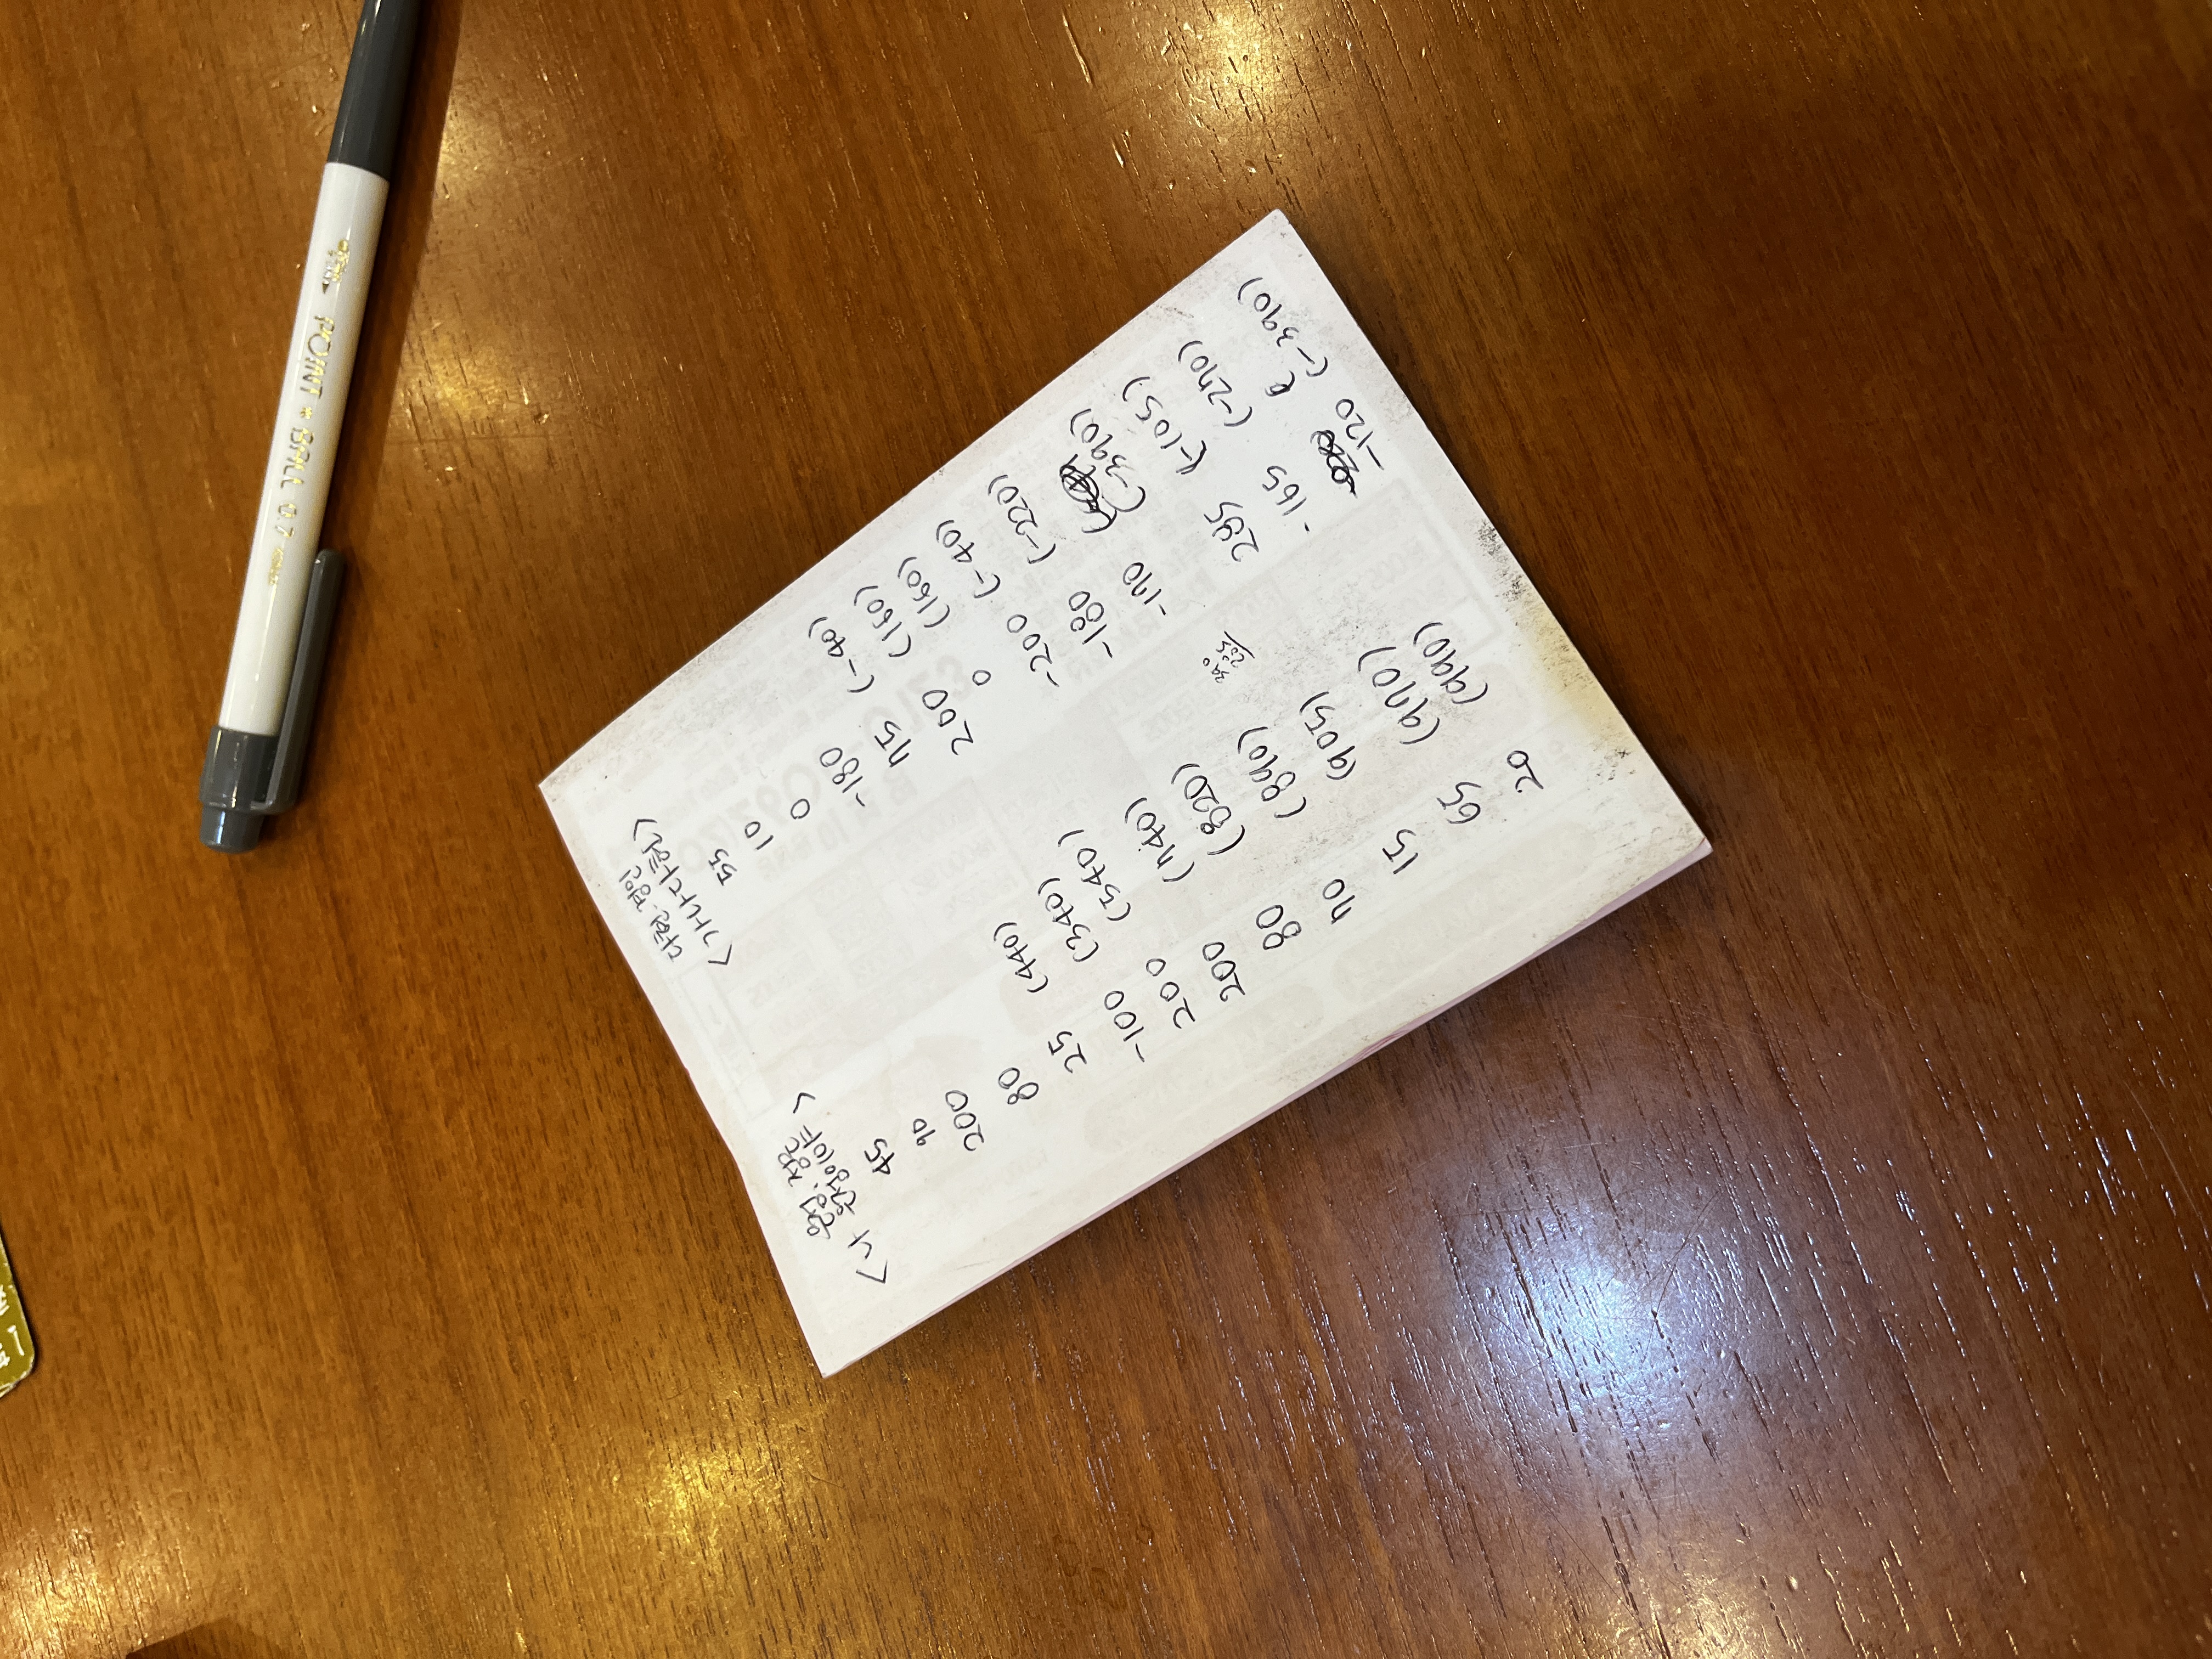 은정. 정은
<나 은정이야>
45
90
200
80
25 (440)
-100 (340)
200 (540)
200 (740)
80 (820)
70 (890)
15 (905)
65 (970)
20 (990)
다현. 경인
<가나다현>
55
10
0
-180
75 (-40)
200 (160)
0 (160)
-200 (-40)
-180 (-220)
-170 (-390)
390
285
285 (-105)
-165 (-270)
-120 (-390)
POINT * BALL 0.7